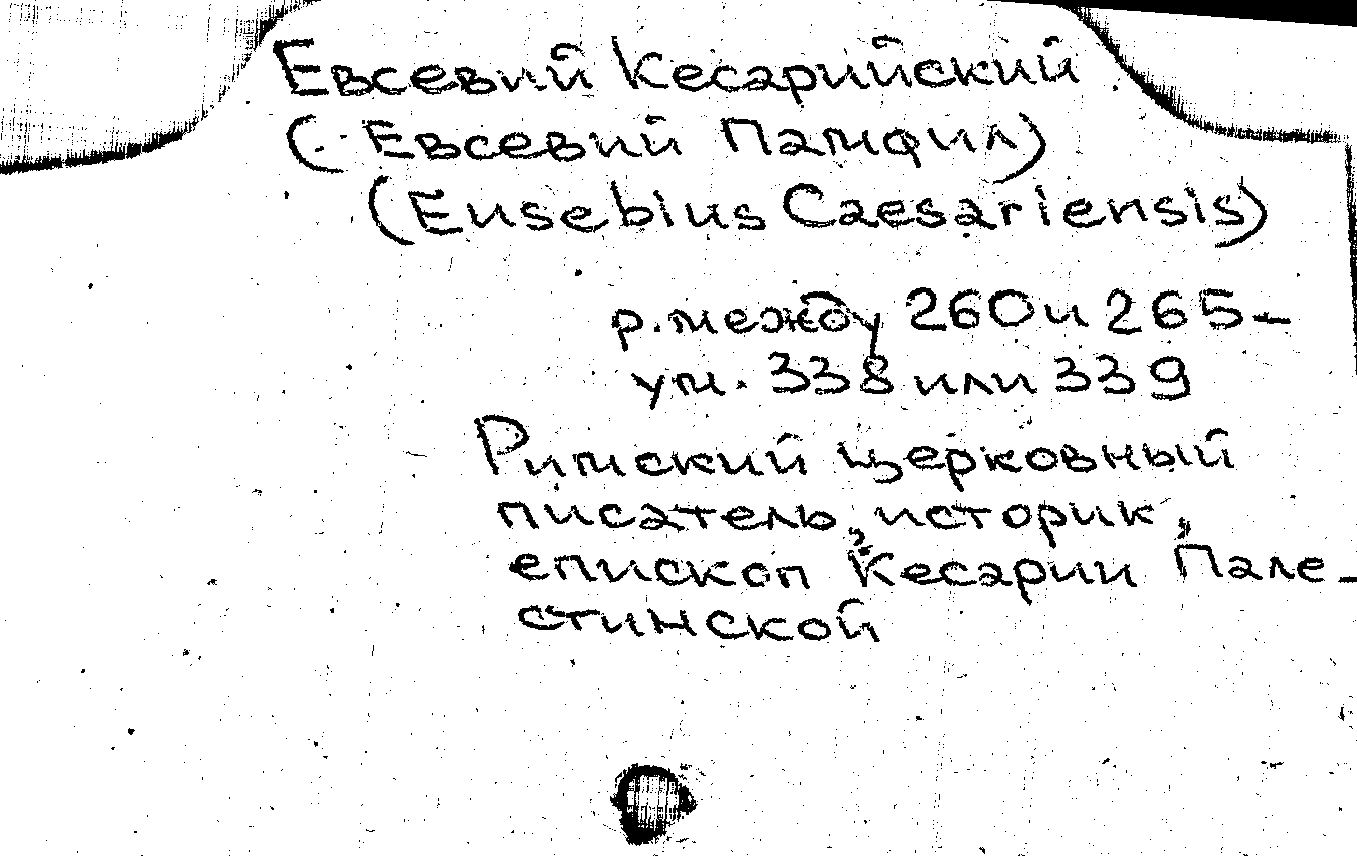 Евсевий Кесарийский
(Евсевий Памфил)
(Eusebius Caesariensis)
р. между 260 и 265 –
ум. 338 или 339
Римский церковный
писатель, историк,
епископ Кесарии Пале-
стинской